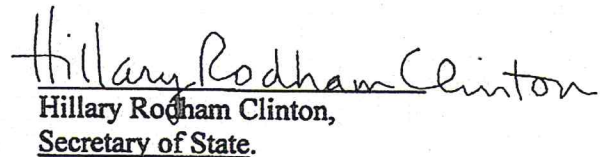 Hillary Rodham Clinton
Hillary Rodham Clinton,
Secretary of State.